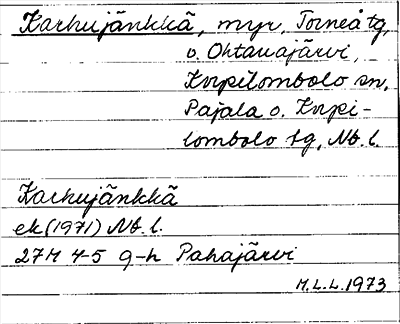 Karhujänkkä, myr, Torneå tg,
v. Ohtanajärvi,
Korpilombolo sn,
Pajala o. Korpi-
lombolo tg, Nb. l.
Karhujänkkä
ek (1971) Nb. l.
27M 4-5 g-h Pahajärvi
M.L.L. 1973